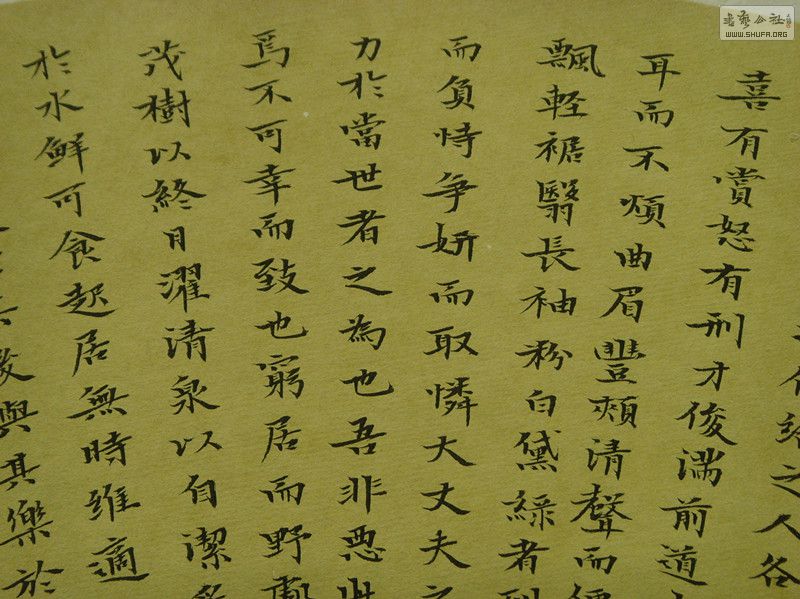 供給之人各
喜有賞怒有刑才俊满前道
耳而不煩曲眉豐頰清聲而便
飄輕裾翳長袖粉白黛綠者列
而負恃争妍而取憐大丈夫之
力於當世者之為也吾非惡此
焉不可幸而致也窮居而野處
茂樹以終日濯清泉以自潔
於水鮮可食起居無時維適
與其樂於
書藝公社
WWW.SHUFA.ORG